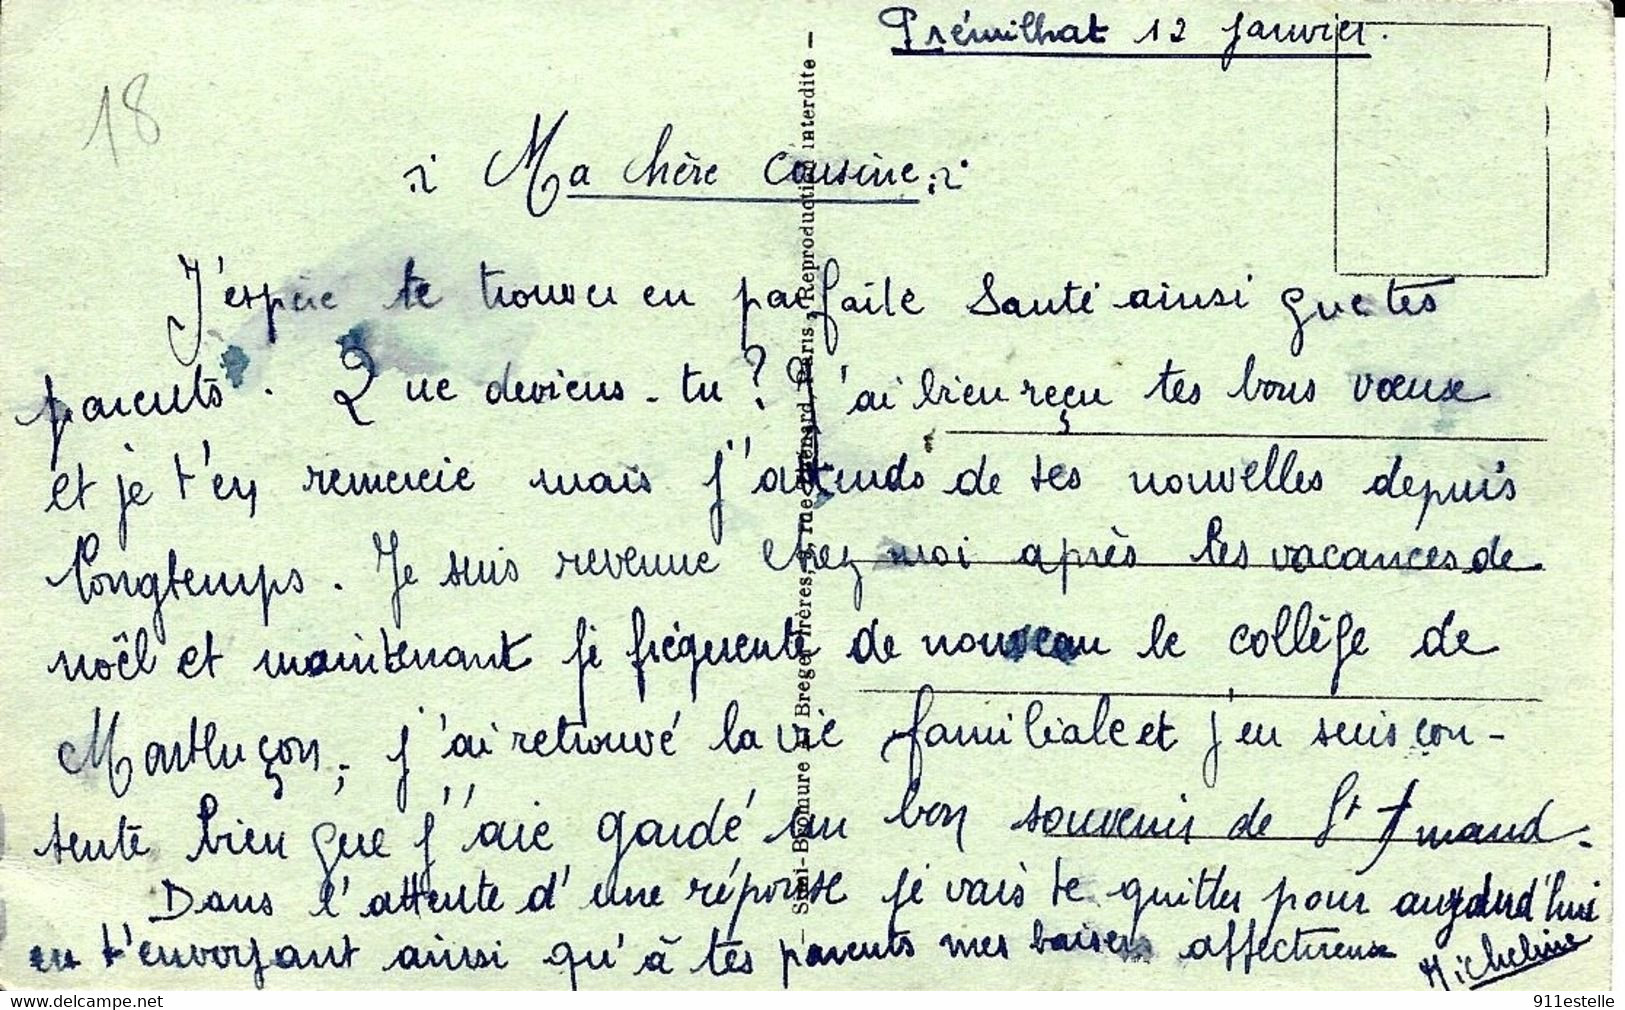 Prémilhat 12 Janvier.
18
Ma chère cousine
J'espère te trouver en parfaite Santé ainsi que tes
parents. Que deviens-tu? J'ai bien reçu tes bons vœux
et je t'en remercie mais j'attends de tes nouvelles depuis
longtemps. Je suis revenue chez moi après les vacances de
noël et maintenant je fréquente de nouveau le collège de
Montluçon, j'ai retrouvé la vie familiale et j'en suis con-
tente bien que j'aie gardé un bon souvenir de St Amand.
Dans l'attente d'une réponse je vais te quitter pour aujourd'hui
en t'envoyant ainsi qu'à tes parents mes baisers affectueux
Micheline
Semi-Bromure Breger frères, 9, rue Thénard, Paris, Reproduction interdite
911estelle